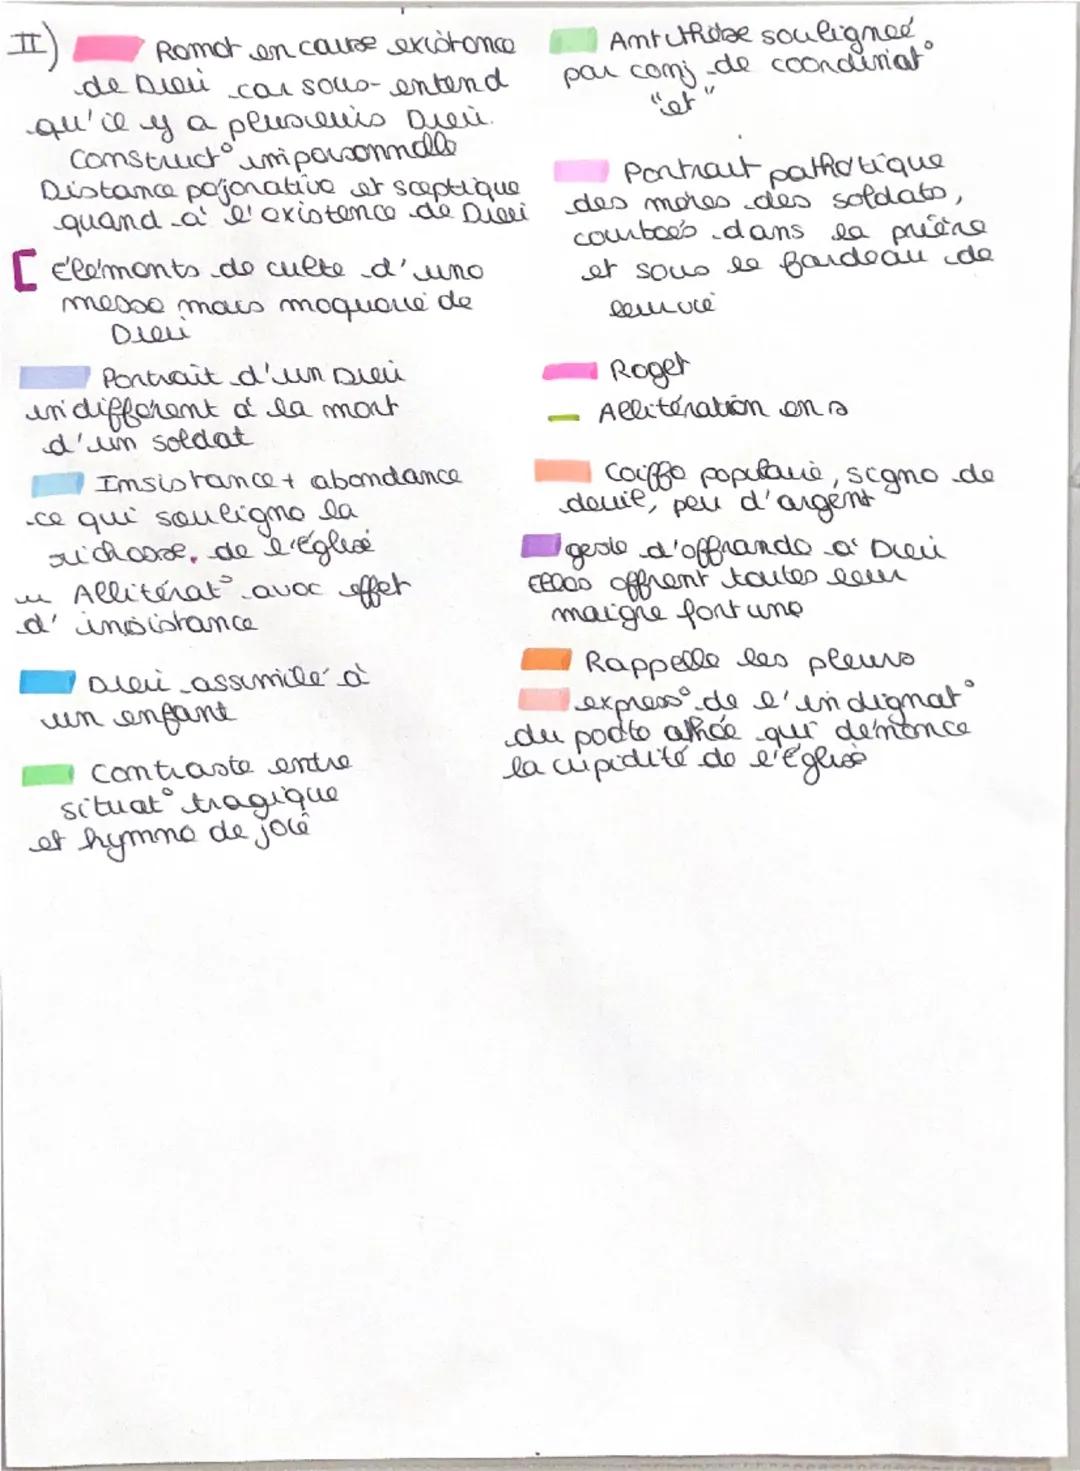 II) Remet en cause existence
de Dieu car sous-entend
qu'il y a plusieurs Dieu.
Construct° impersonnelle
Distance péjorative et sceptique
quand à l'existence de Dieu
[ Eléments de culte d'une
messe mais moquerie de
Dieu
Portrait d'un Dieu
indifférent à la mort
d'un soldat
Insistance + abondance
ce qui souligne la
richesse de l'église
Allitérat° avec effet
d'insistance
Dieu assimilé à
un enfant
Contraste entre
situat° tragique
et hymne de joie
Antithèse soulignée
par conj de coordinat°
"et"
Portrait pathétique
des mères des soldats,
courbées dans la prière
et sous le fardeau de
leur vie
Rejet
Allitération en s
Coiffe populaire, signe de
deuil, peu d'argent
geste d'offrande à Dieu
Elles offrent toutes leur
maigre fortune
Rappelle les pleurs
express° de l'indignat°
du poète athée qui dénonce
la cupidité de l'église